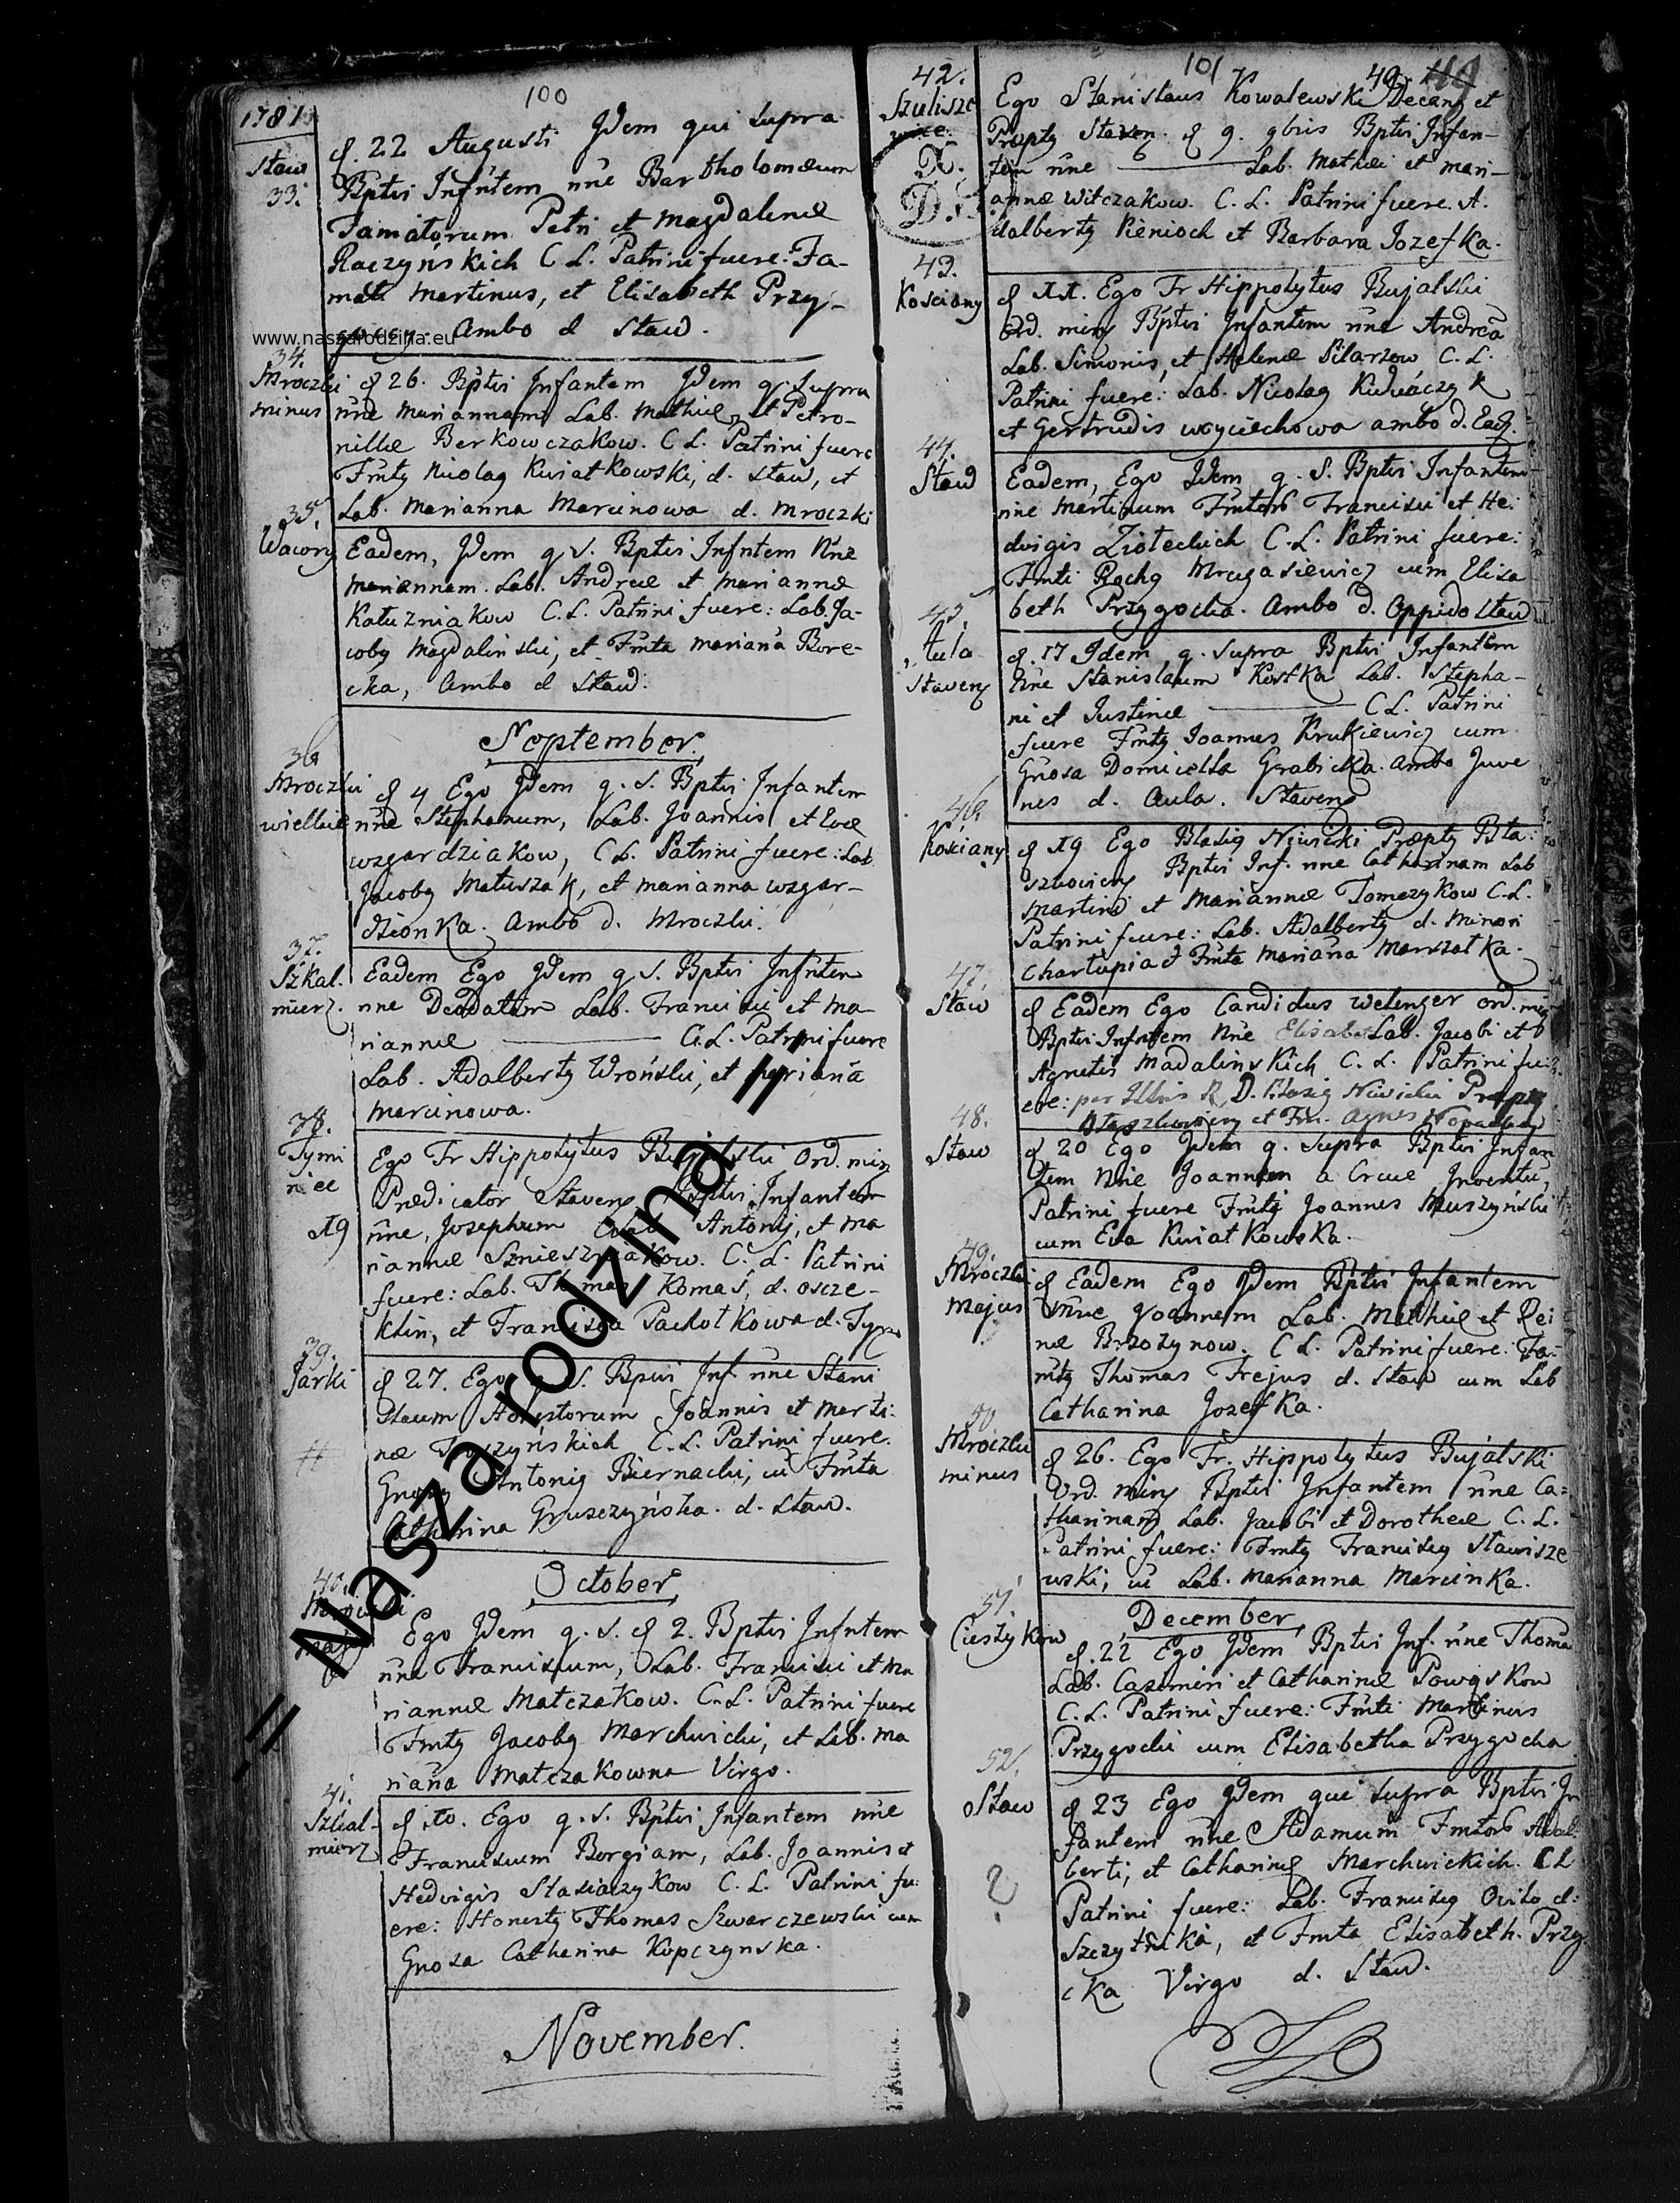 100
1781
Staw
33.
d. 22 Augusti Jdem qui supra
Bptisi Infntem nne Bartholomæum
Famatorum Petri et Magdalenæ
Raczynskich C L. Patrini fuere: Fa-
mati Martinus, et Elisabeth Przy-
Ambo d Staw.
www.naszarodzina.eu
34.
Mroczki
minus
d 26. Bptisi Infantem Jdem q. Supra
nne Mariannam Lab. Mathiæ, et Petro-
nillæ Berkowczakow. C L. Patrini fuere
Fmty Nicolaq Kwiatkowski, d. Staw, et
Lab. Marianna Marcinowa d. Mroczki
35.
Wacory
Eadem, Jdem q S. Bptisi Infntem Nne
Mariannam. Lab. Andreæ et Mariannæ
Katuzniakow C. L. Patrini fuere: Lab. Ja-
coby Magdalinski, et Fmta Mariana Bore-
cka, Ambo d Staw.
September.
36
Mroczki
wielkie
d 4 Ego Jdem q. S. Bptisi Infantem
nne Stephanum, Lab. Joannis et Evæ
wzgardziakow, C L. Patrini fuere: Lab.
Jacoby Matuszak, et Marianna wzgar-
dzionka. Ambo d. Mroczki.
37.
Szkal.
mierz.
Eadem Ego Jdem q S. Bptisi Infntem
nne Deodatum Lab. Francisci et Ma-
riannæ C. L. Patrini fuere
Lab. Adalberty Wroński, et Mariana
Marcinowa.
38.
Tymi
niec
19
Ego Fr Hippolytus Bujalski Ord. min
Prædicator Staveng Bptisi Infantem
nne, Josephum Antonij, et Ma
riannæ Sznieszniakow. C. L. Patrini
fuere: Lab. Thomas Komas, d. Oscze-
klin, et Francisca Pachotkowa d. Tym
39.
Jarki
d 27. Ego S. Bptisi Inf nne Stani
slaum Honestorum Joannis et Marti-
næ C. L. Patrini fuere.
Antonig Biernacki, cu Fmta
Catharina Gruszczyńska. d. Staw.
October.
40.
Ego Jdem q. S. d 2. Bptisi Infntem
nne Franciscum, Lab. Francisci et Ma
riannæ Matczakow. C. L. Patrini fuere
Fmty Jacoby Marchwicki, et Lab. Ma
riana Matczakowna Virgo.
41.
Szkal-
mierz
d 10. Ego q. S. Bptisi Infantem nne
Franciscum Borgiam, Lab. Joannis et
Hedvigis Stasiaczykow C. L. Patrini fu
ere: Honesty Thomas Szwarczewski cum
Gnosa Catharina Kopczynska.
November.
101
42.
Szulisze
wice.
X.
D.
Ego Stanislaus Kowalewski Decang et
Præpty Staven. d 9. 9bris Bptisi Infan-
tem nne Lab. Mathæi et Mari-
annæ Witczakow. C. L. Patrini fuere. A.
dalberty Pienioch et Barbara Jozefka.
43.
Kosciany
d 11. Ego Fr Hippolytus Bujalski
Ord. min Bptisi Infantem nne Andrea
Lab. Simonis, et Helenæ Pilarzow C. L.
Patrini fuere: Lab. Nicolag Kudlaczyk
et Gertrudis Woyciechowa ambo d. Ead.
44.
Staw
Eadem, Ego Jdem q. S. Bptisi Infantem
nne Martinum Fmtor Francisci et He:
dvigis Zioteckich C. L. Patrini fuere:
Fmti Rochg Mragasiewicz cum Elisa
beth Przygocka. Ambo d. Oppido Staw
45.
Aula
Staveng
d. 17 Idem q. Supra Bptisi Infantem
Nne Stanislaum Kostka Lab. Stepha-
ni et Justinæ C L. Patrini
fuere Fmty Joannes Krukiewicz cum
Gnosa Domicella Grabicka. Ambo Juve
nes d. Aula. Staveng
46.
Kosciany
d 19 Ego Blasig Niwicki Præpty Bta:
szkovieng Bptisi Inf. nne Catharinam Lab
Martini et Mariannæ Tomczykow C L.
Patrini fuere: Lab. Adalberty d. Minori
Chartupia et Fmta Mariana Marszatka.
47.
Staw
d Eadem Ego Candidus Welenger Ord. min
Bptisi Infntem Nne Elisabet Lab. Jacobi et
Agnetis Madalinskich C. L. Patrini fu
ere: per Illris R. D. Blasig Niwicki Præpty
et Fm. Agnes
48.
Staw
d 20 Ego Jdem q. Supra Bptisi Infan
tem Nne Joannem a Cruce Inventu,
Patrini fuere Fmty Joannes Muszyński
cum Eva Kwiatkowska.
49.
Mroczki
Majus
d Eadem Ego Jdem Bptisi Infantem
Nne Joannem Lab. Mathiæ et Rei
næ Brzozynow. C L. Patrini fuere: Fa-
mty Thomas Trejus d. Staw cum Lab
Catharina Jozefka.
50.
Mroczki
minus
d 26. Ego Fr. Hippolytus Bujalski
Ord. min Bptisi Infantem nne Ca-
tharinam Lab. Jacobi et Dorotheæ C. L.
Patrini fuere: Fmty Francisq Stawisze
wski, cu Lab. Marianna Marcinka.
December
51.
Ciestykow
d. 22 Ego Jdem Bptisi Inf. nne Thoma
Lab. Casimiri et Catharinæ Powąskow
C. L. Patrini fuere: Fmti Martinus
Przygocki cum Elisabetha Przygocka
52.
Staw
?
d 23 Ego Jdem qui supra Bptisi In
fantem nne Adamum Fmtor Adal
berti, et Catharinæ Marchwickich. C L
Patrini fuere: Lab. Francisq Ovito d:
Szczytnika, et Fmta Elisabeth. Przy
cka Virgo d. Staw.
.:: Nasza rodzina ::.